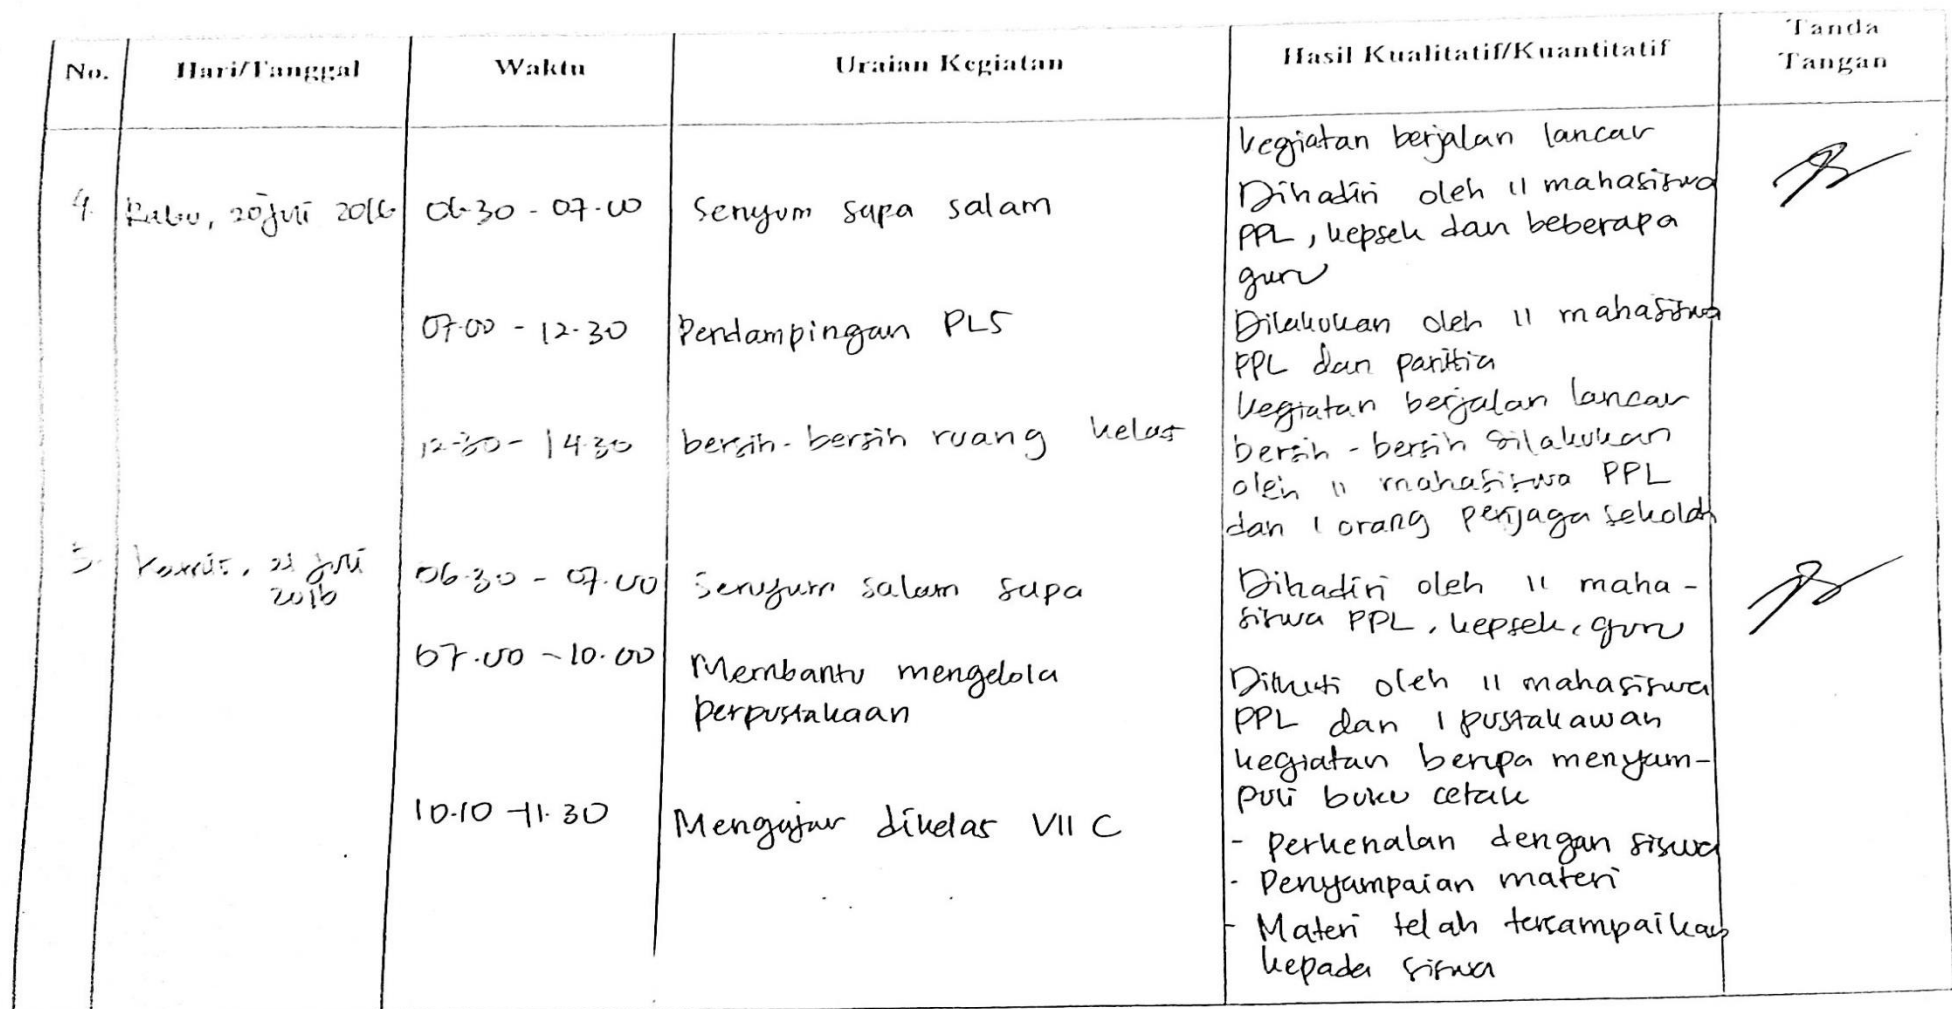 No. Hari/Tanggal Waktu Uraian Kegiatan Hasil Kualitatif/Kuantitatif Tanda Tangan
kegiatan berjalan lancar
4. Rabu, 20 juli 2016 06.30 - 07.00 Senyum sapa salam Dihadiri oleh 11 mahasiswa
PPL, kepsek dan beberapa
guru
07.00 - 12.30 Pendampingan PLS Dilakukan oleh 11 mahasiswa
PPL dan panitia
kegiatan berjalan lancar
12.30 - 14.30 bersih-bersih ruang kelas bersih - bersih dilakukan
oleh 11 mahasiswa PPL
dan 1 orang penjaga sekolah
5. Kamis, 21 juli 06.30 - 07.00 Senyum salam sapa Dihadiri oleh 11 maha-
2016 siswa PPL, kepsek, guru
07.00 - 10.00 Membantu mengelola Diikuti oleh 11 mahasiswa
perpustakaan PPL dan 1 pustakawan
kegiatan berupa menyam-
puli buku cetak
10.10 - 11.30 Mengajar dikelas VII C - perkenalan dengan siswa
- Penyampaian materi
- Materi telah tersampaikan
kepada siswa